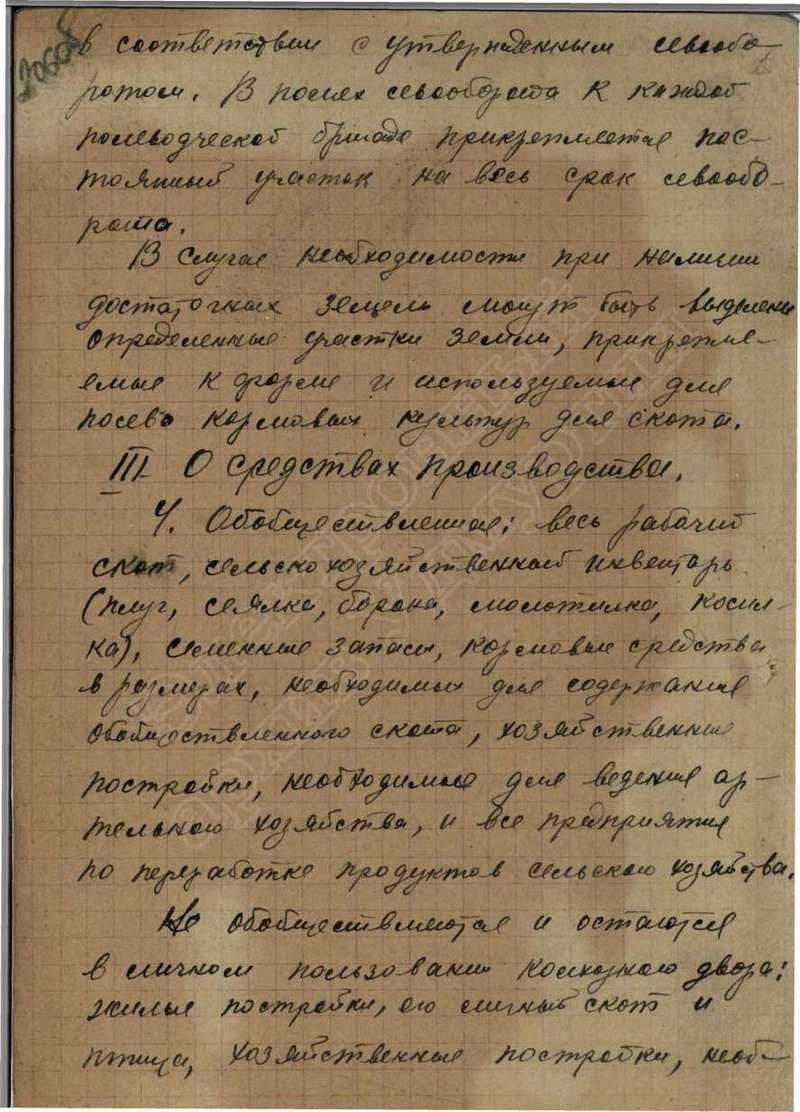 в соответствии с утвержденным севообо-
ротом. В полях севооборота к каждой
полеводческой бригаде прикрепляется пос-
тоянный участок на весь срок севообо-
рота.
В случае необходимости при наличии
достаточных земель могут быть выделены
определенные участки земли, прикрепля-
емые к ферме и используемые для
посева кормовых культур для скота.
III О средствах производства.
4. Обобществленные: весь рабочий
скот, сельскохозяйственный инвентарь
(плуг, сеялка, борона, молотилка, косил-
ка), семенные запасы, кормовые средства
в размерах, необходимых для содержания
обобществленного скота, хозяйственные
постройки, необходимые для ведения ар-
тельного хозяйства, и все предприятия
по переработке продуктов сельского хозяйства.
Не обобществляются и остаются
в личном пользовании колхозного двора:
жилые постройки, его личный скот и
птица, хозяйственные постройки, необ-